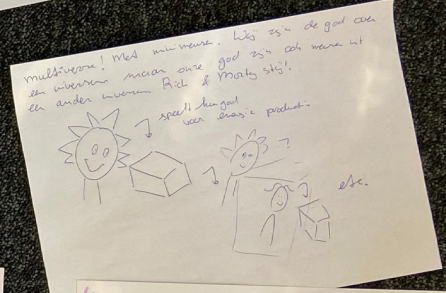 multiversum! Met mini mensen. Wij zijn de god over
een universum maar onze god zijn ook mensen uit
een ander universum Rick & Morty stijl!
speelt hun god
voor energie productie
?
etc.